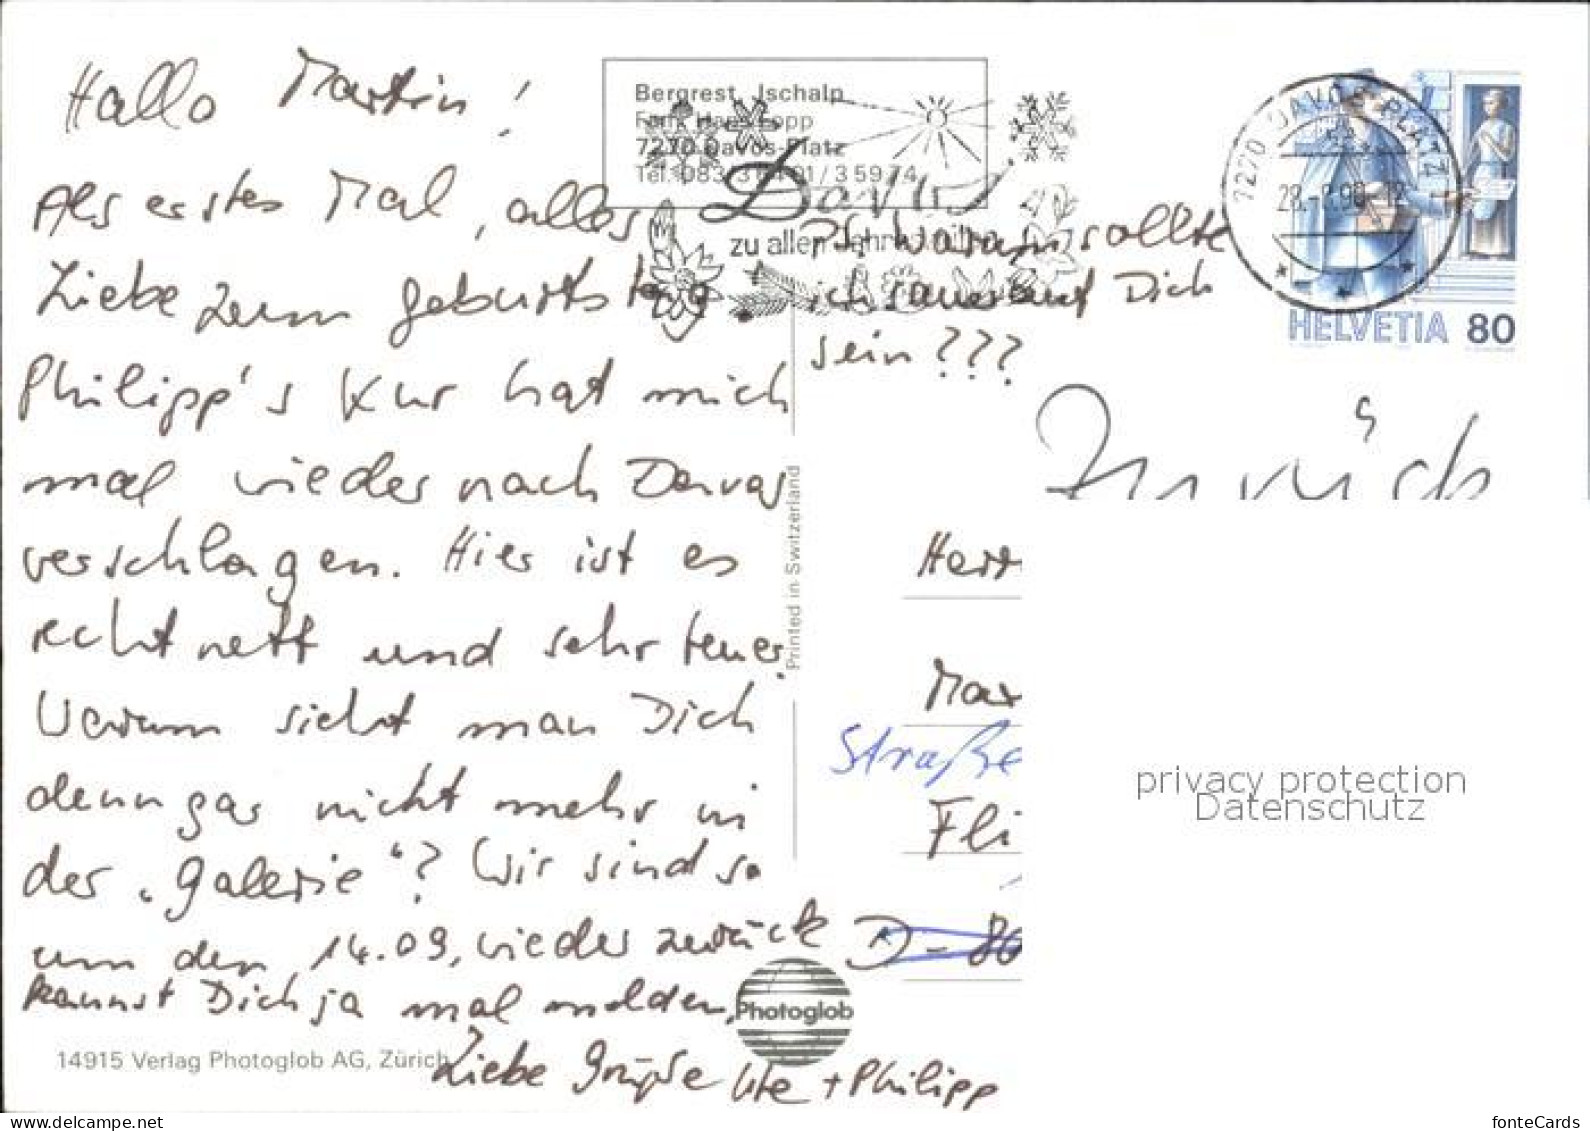 Hallo Martin!
Als erstes Mal, alles
Liebe zum Geburtstag.
Philipp's Kur hat mich
mal wieder nach Davos
verschlagen. Hier ist es
recht nett und sehr teuer.
Warum sieht man Dich
denn gar nicht mehr in
der "Galerie"? Wir sind so
um den 14.09. wieder zurück
kannst Dich ja mal melden,
Liebe Grüße Ute + Philipp
PS. Warum sollte
ich sauer auf Dich
sein???
Bergrest. Ischalp
Fam. Hans Fopp
7270 Davos-Platz
Tel. 083/3
/3 59 74
Davos
zu allen Jahreszeiten
7270 DAVOS PLATZ 1
HELVETIA 80
Zurück
Herr
Mar
Straße
Fli
D-86
Printed in Switzerland
Photoglob
14915 Verlag Photoglob AG, Zürich
privacy protection
Datenschutz
www.delcampe.net
fonteCards